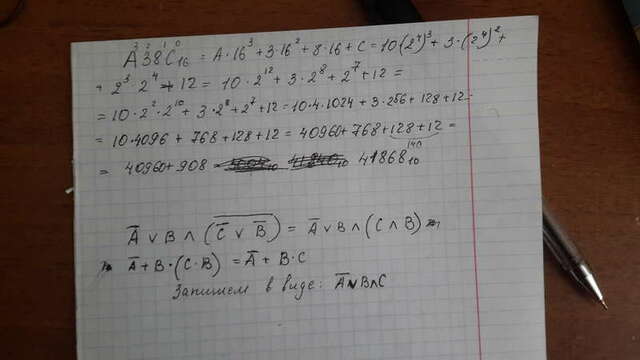 A³3²8¹C⁰₁₆ = A·16³ + 3·16² + 8·16 + C = 10(2⁴)³ + 3·(2⁴)² +
+ 2³·2⁴ + 12 = 10·2¹² + 3·2⁸ + 2⁷ + 12 =
= 10·2²·2¹⁰ + 3·2⁸ + 2⁷ + 12 = 10·4·1024 + 3·256 + 128 + 12 =
= 10·4096 + 768 + 128 + 12 = 40960 + 768 + 128 + 12 =
140
= 40960 + 908 41868₁₀
A̅ ∨ B ∧ (C̅ ∨ B̅)̅ = A̅ ∨ B ∧ (C ∧ B)
A̅ + B·(C·B) = A̅ + B·C
Запишем в виде: A̅ ∨ B ∧ C